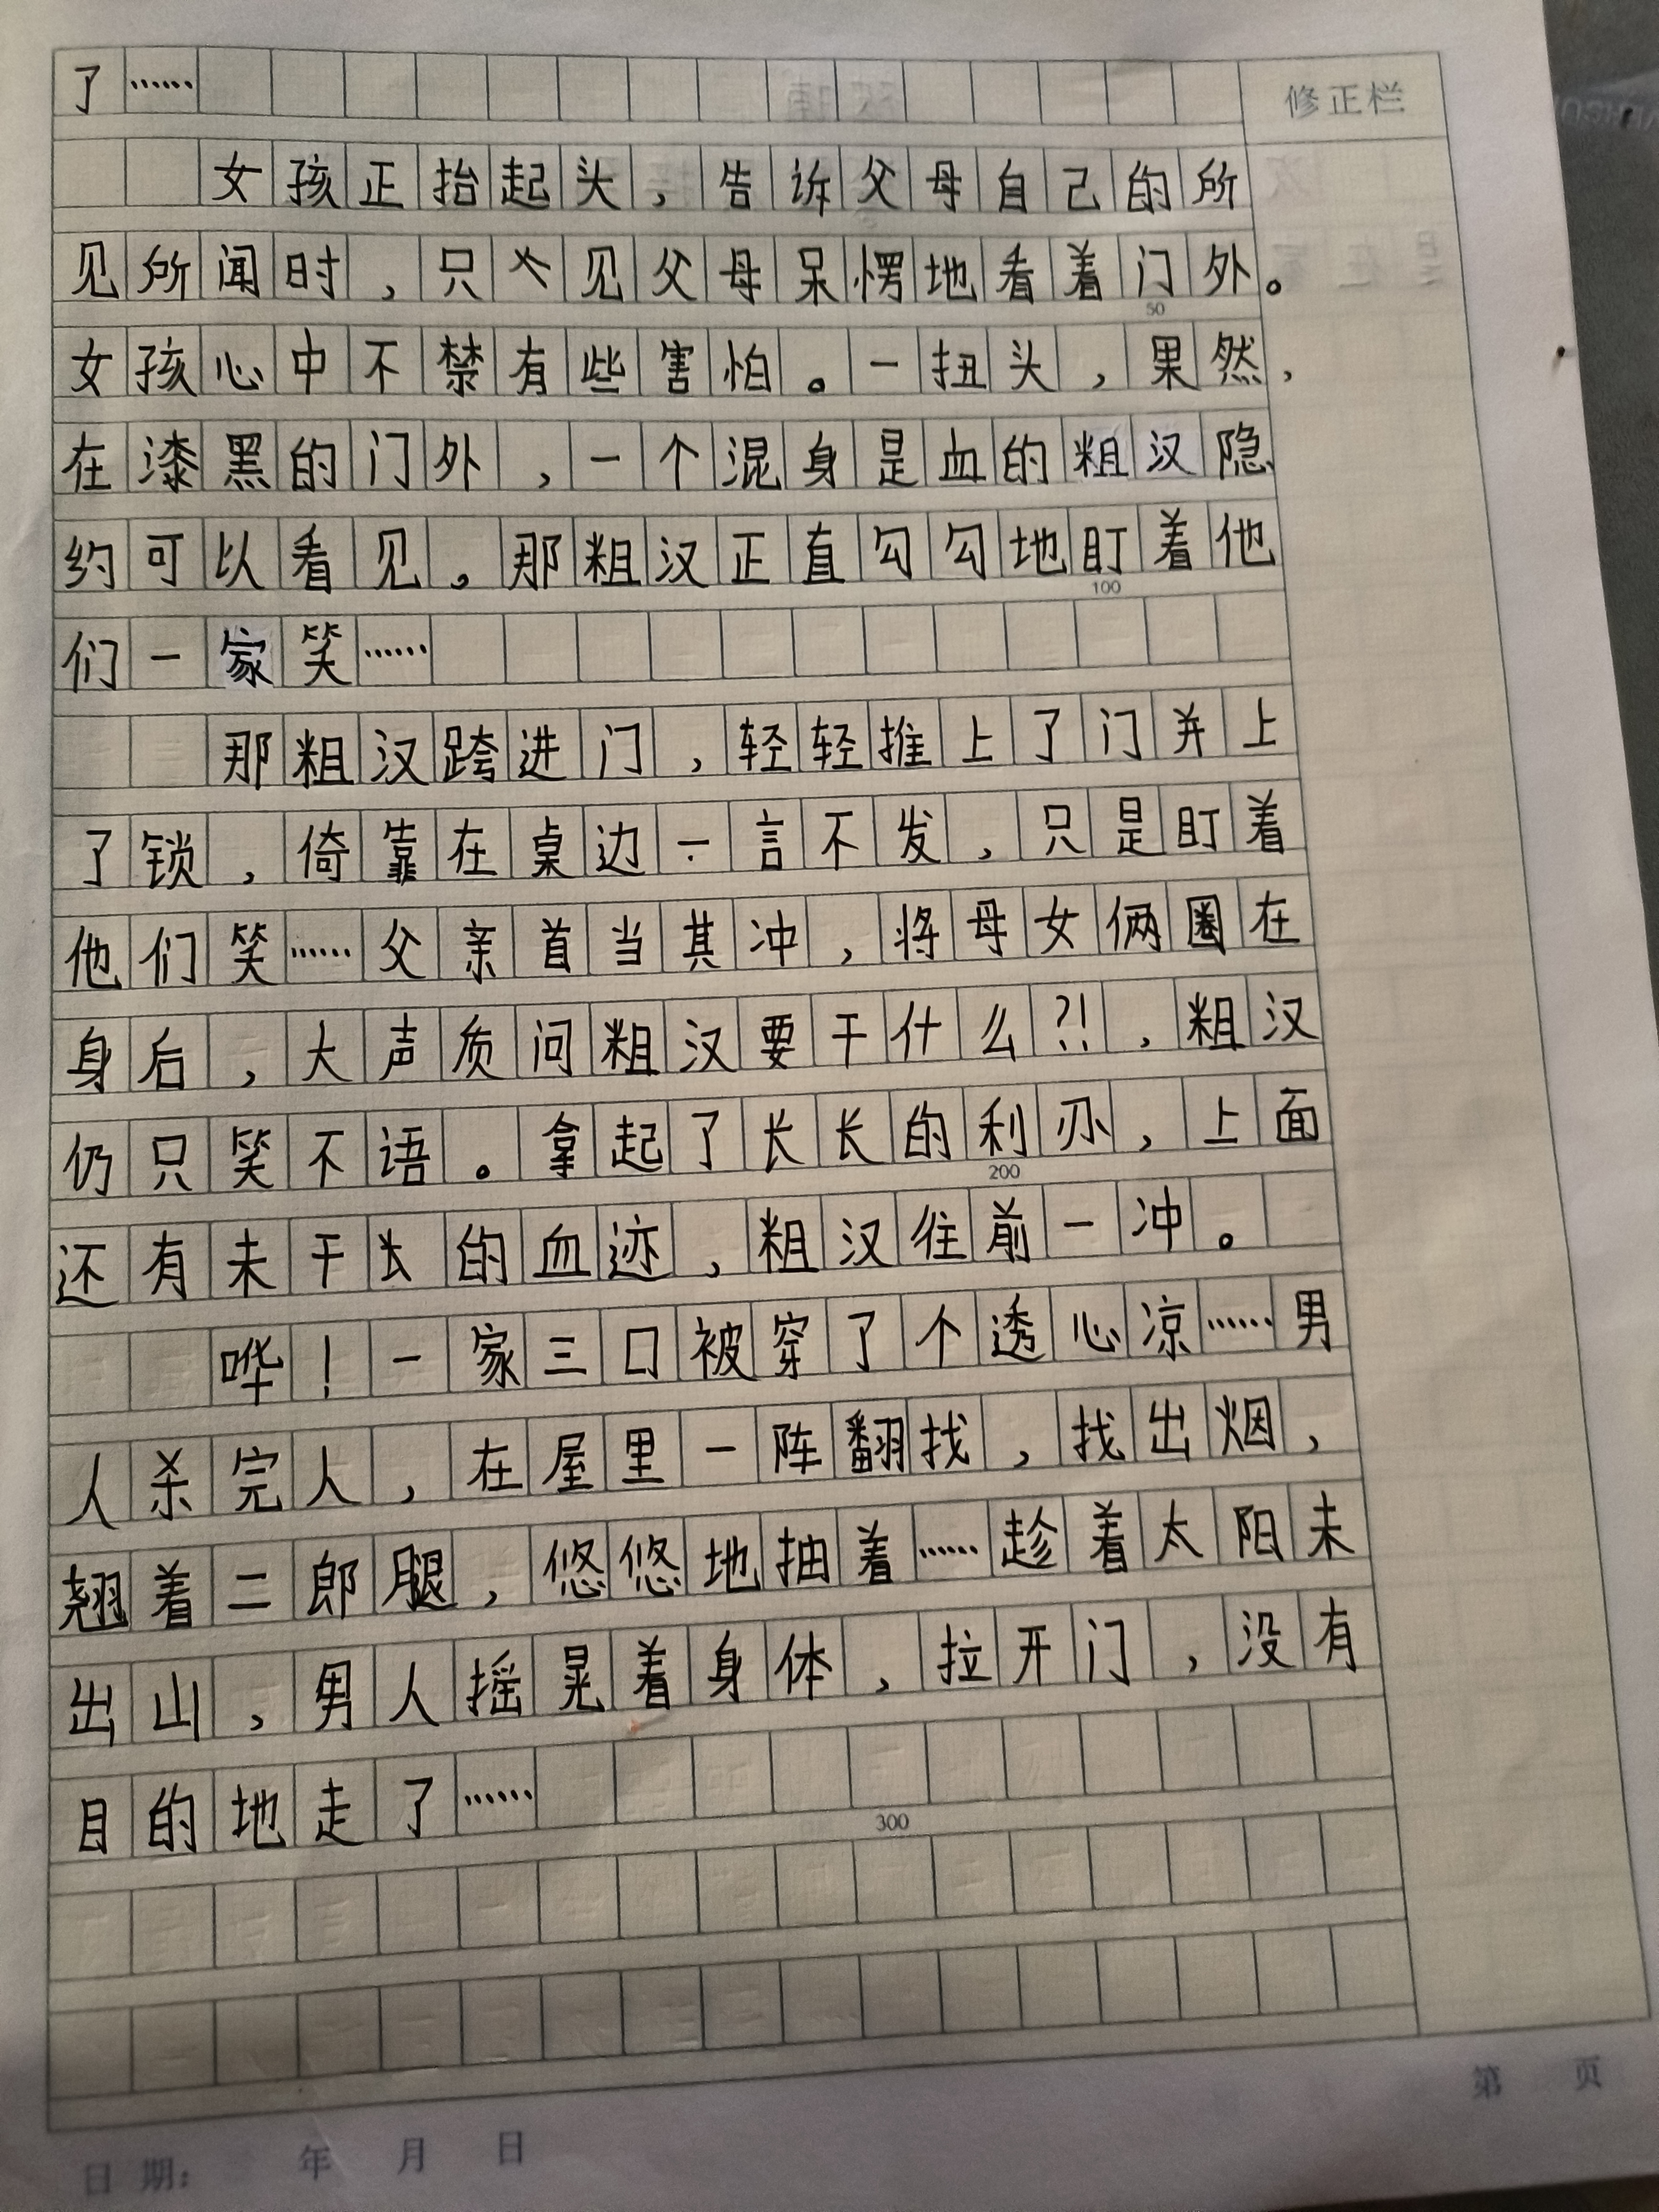 了……
修正栏
女孩正抬起头，告诉父母自己的所
见所闻时，只见父母呆愣地看着门外。
50
女孩心中不禁有些害怕。一扭头，果然，
在漆黑的门外，一个混身是血的粗汉隐
约可以看见。那粗汉正直勾勾地盯着他
100
们一家笑……
那粗汉跨进门，轻轻推上了门并上
了锁，倚靠在桌边一言不发，只是盯着
他们笑……父亲首当其冲，将母女俩圈在
身后，大声质问粗汉要干什么?!，粗汉
仍只笑不语。拿起了长长的利刃，上面
200
还有未干的血迹，粗汉往前一冲。
哗！一家三口被穿了个透心凉……男
人杀完人，在屋里一阵翻找，找出烟，
翘着二郎腿，悠悠地抽着……趁着太阳未
出山，男人摇晃着身体，拉开门，没有
目的地走了……
300
第 页
日期： 年 月 日